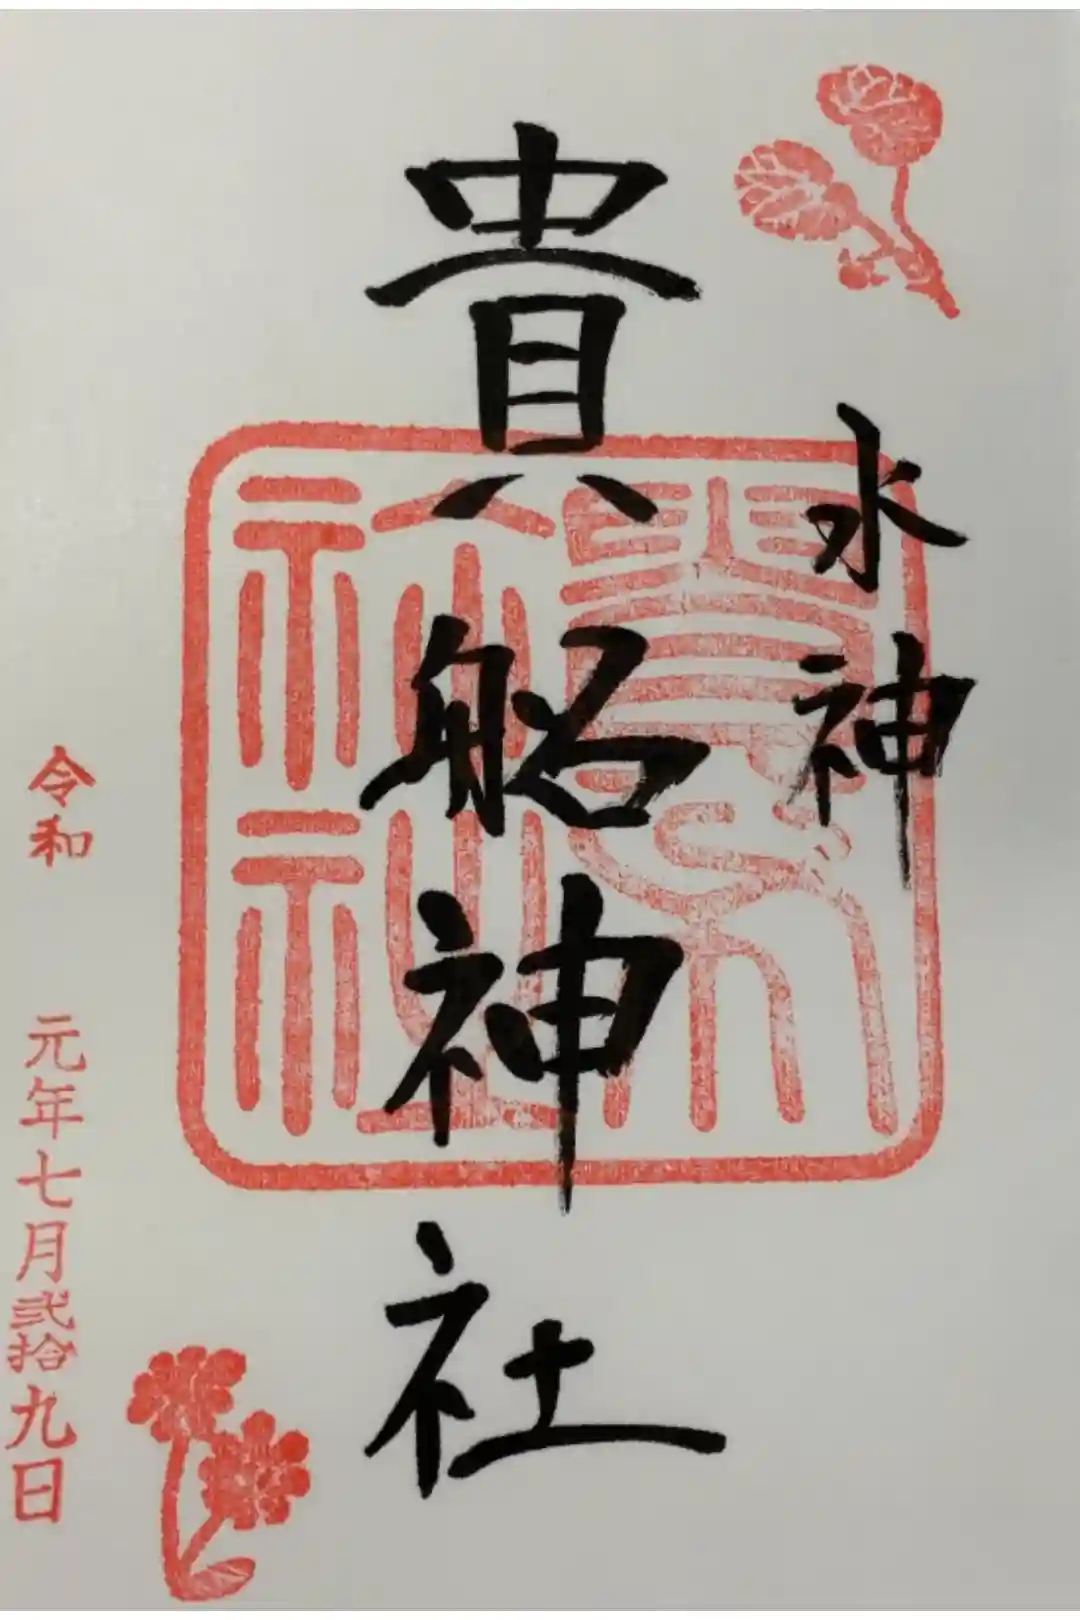 水神
貴船神社
令和 元年七月弐拾九日
貴船
神社